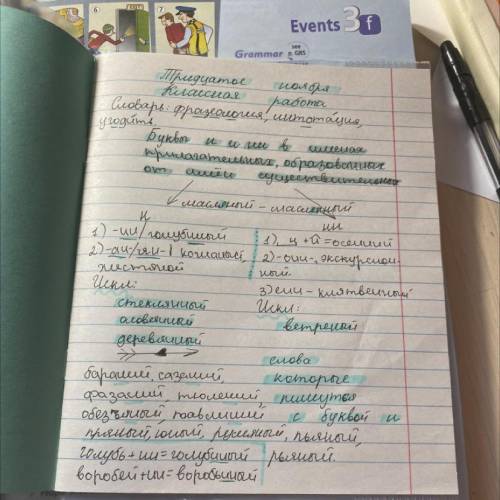 6
7
Events 3 f
Grammar see p. GR5
Тридцатое ноября
Классная работа
Словарь: фразеология, интонация,
угодить
Буквы н и нн в именах
прилагательных, образованных
от имён существительных
масляный - масленный
Н
НН
1) -ин/голубиный
1) н + й = осенний
2) -ан-/-ян-/ кожаный,
2) -онн-, экскурсион-
ный.
3) енн - клятвенный
Искл:
Искл:
стеклянный
оловянный
ветреной
деревянный
слова
бараний, сазаний, которые
фазаний, тюлений, пишутся
обезьяний, павлиний с буквой н
пряный, юный, румяный, пьяный,
голубь + ин = голубиный
рьяный.
воробей + ин = воробьиный